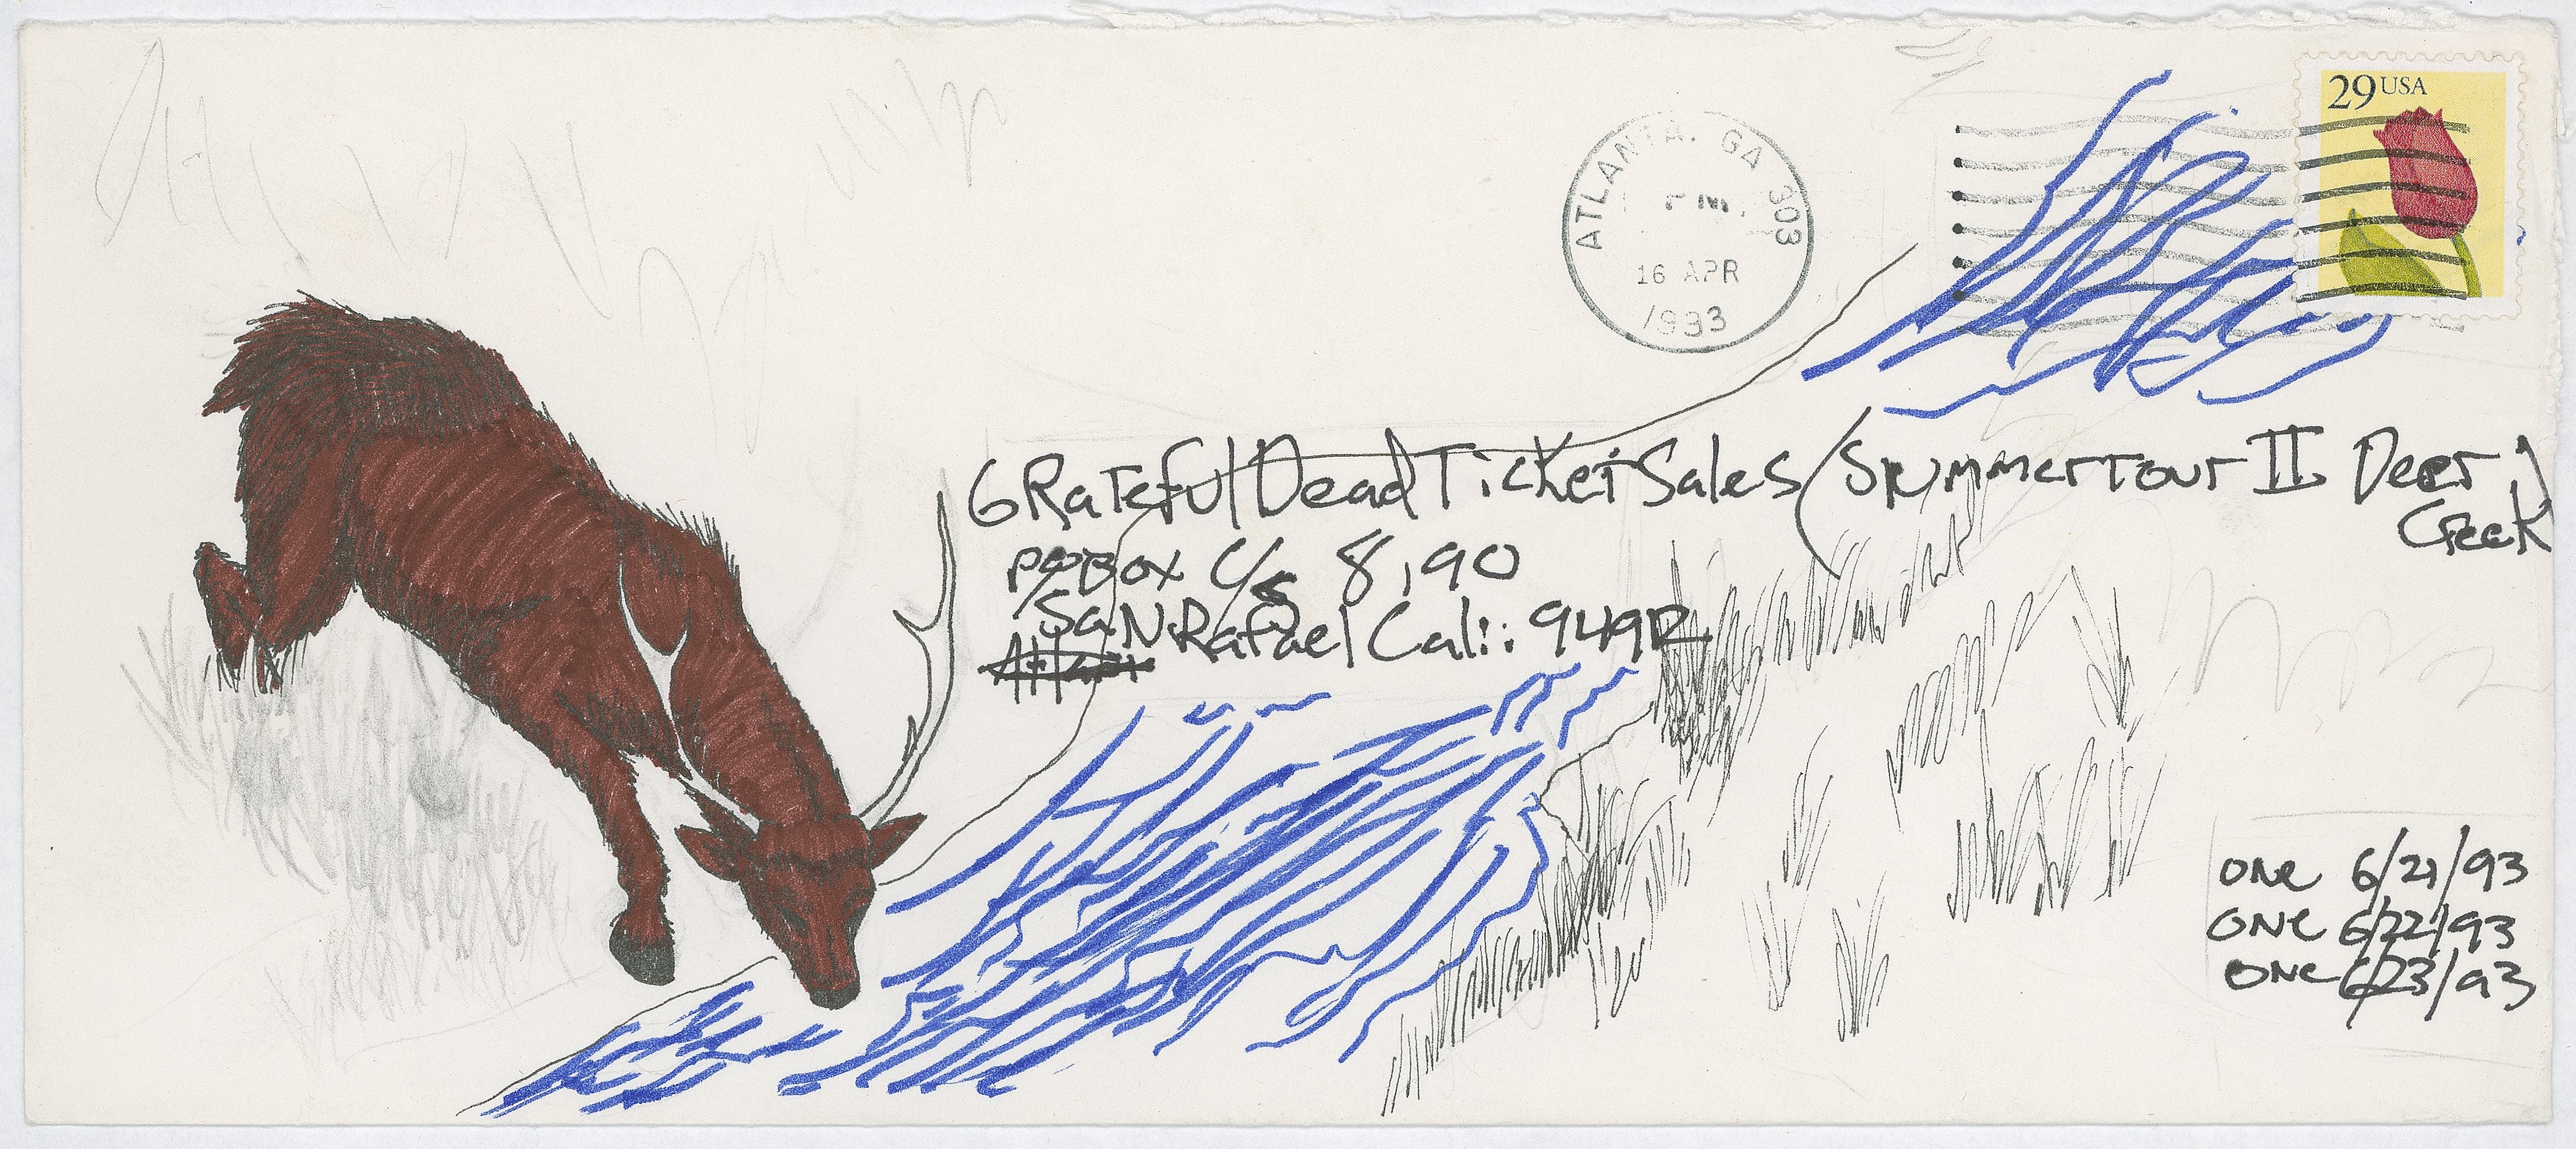 29 USA
ATLANTA, GA 303
PM
16 APR
1993
GRateful Dead Ticket Sales (Summer Tour II Deer
Creek)
P.O Box C/S 8,90
San Rafael Cali:
one 6/21/93
ONe 6/22/93
one 6/23/93